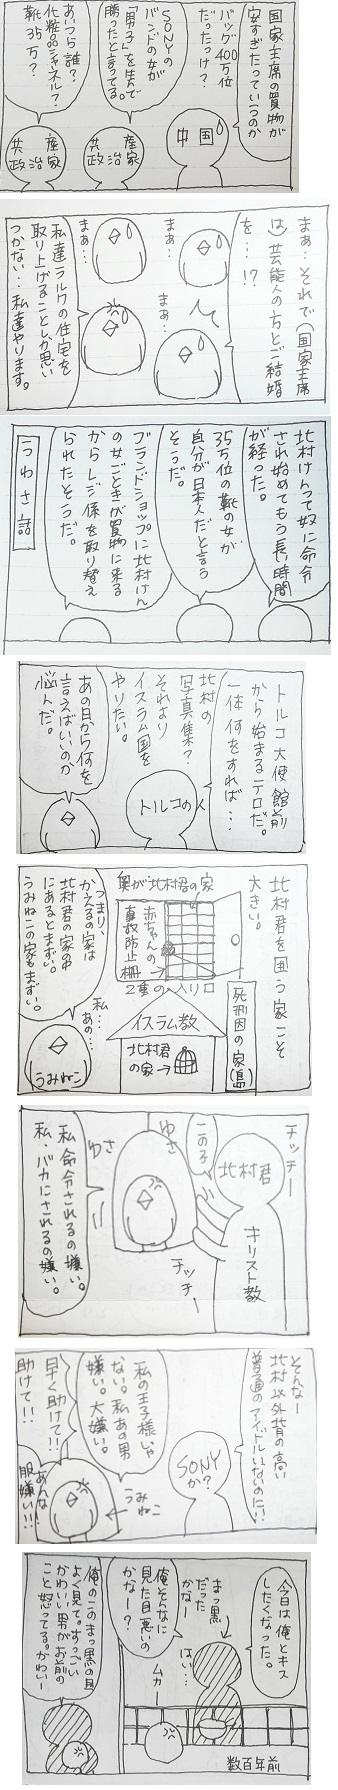 国家主席の買物が
安すぎたっていうのか
バッグ400万位
だったっけ?
中国
SONYの
バンドの女が
「男子」を生んで
勝ったと言ってる。
共産
政治家
あいつら誰?
化粧品シャネル?
靴35万?
共産
政治家
まぁ…それで(国家主席
は)芸能人の方とご結婚
を…!?
まぁ…
まぁ…
まぁ…
私達ラルクの住宅を
取り上げることしか思い
つかない…私達やります。
北村けんって奴に命令
され始めてもう長い時間
が経った。
35万位の靴の女が
自分が日本人だと言う
そうだ。
ブランドショップに北村けん
の女ごときが買物に来る
からレジ係を取り替え
られたそうだ。
うわさ話
トルコ大使館前
から始まるテロだ。
一体何をすれば…
北村の
写真集?
それより
イスラム国を
やりたい。
トルコの人
あの日から何を
言えばいいのか
悩んだ。
北村君を囲う家こそ
大きい。
奥が北村君の家
赤ちゃんの
事故防止柵
2重の入り口
死刑囚の家(島)
イスラム教
北村君
の家→
つまり、
かえるの家は
北村君の家の中
にあるとまずい。
うみねこの家もまずい。
私…
あの…
うみねこ
チッチー
この子
北村君
キリスト教
ゆさ
ゆさ
チッチー
私命令されるの嫌い。
私、バカにされるの嫌い。
そんなー
北村以外背の高い
普通のアイドルいないのに!!
SONY
か?
私の王子様じゃ
ない。私あの男
嫌い。大嫌い。
うみねこ
早く助けて!!
助けて!!
あんな
服嫌い!!!
今日は俺とキス
したくなった。
まっ黒
だった
かなー
はい…
俺そんなに
見た目悪いの
かなー?
ムカー
数百年前
俺のこのまっ黒の目
よく見て。すっごい
かわいい男がお前の
こと怒ってる。かわいー